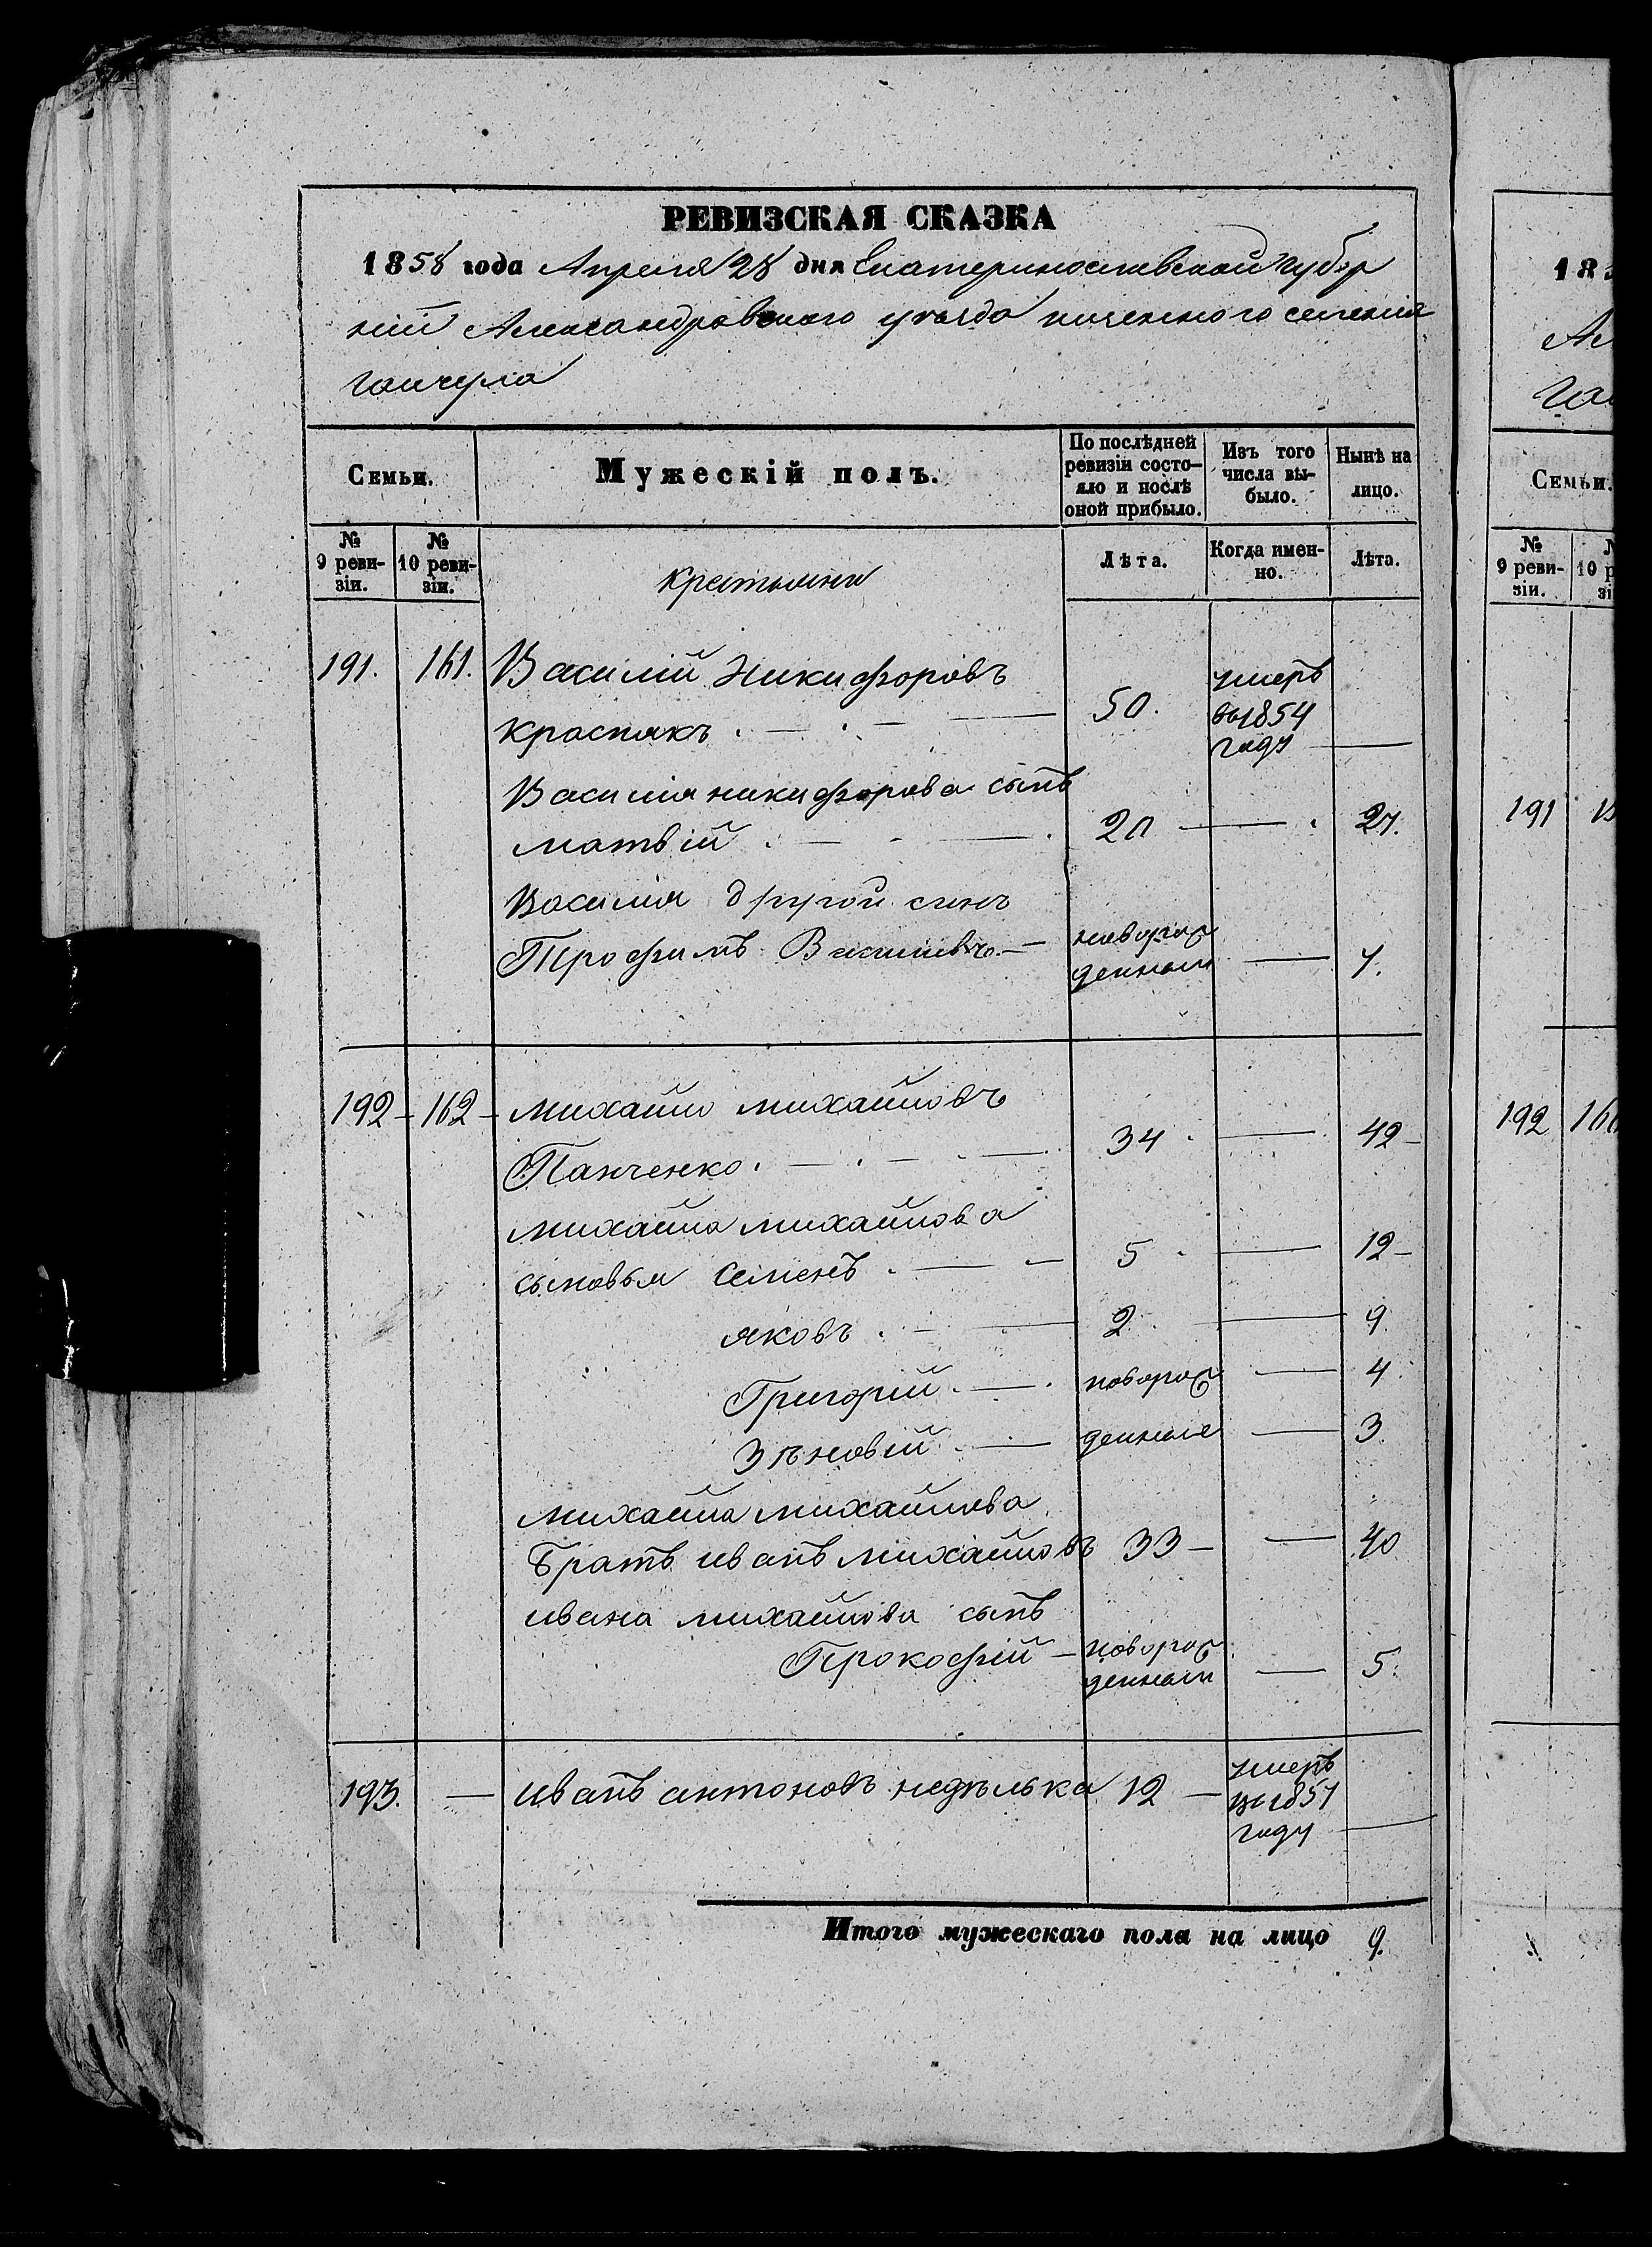 РЕВИЗСКАЯ СКАЗКА
1858 года Апреля 28 дня Екатеринославской губер
ніи Александровскаго уѣзда казеннаго селенія
гайчула
Семьи.
Мужескій полъ.
По послѣдней ревизіи состояло и послѣ оной прибыло.
Изъ того числа выбыло.
Нынѣ на лицо.
№ 9 ревизіи.
№ 10 ревизіи.
крестьяни
Лѣта.
Когда именно.
Лѣта.
191. 161. Василій Никифоровъ
Краснякъ 50. умеръ
въ 1854
году
Василія никифорова сынъ
матвій 20 27.
Василія другой синъ
Трофимъ Васильевъ новорож
денный 7.
192 162 михайло михайловъ
Панченко 34 42
михайла михайлова
сыновья Семенъ 5 12
яковъ 2 9
Григорій новорож 4
Зѣновій денные 3
михайла михайлова
Братъ иванъ михайловъ 33 40
ивана михайлова сынъ
Прокофій новорож
денный 5.
193. — иванъ антоновъ недѣлька 12 умеръ
въ 1851
году
Итого мужескаго пола на лицо 9.
Семьи.
№ 9 ревизіи.
191
192